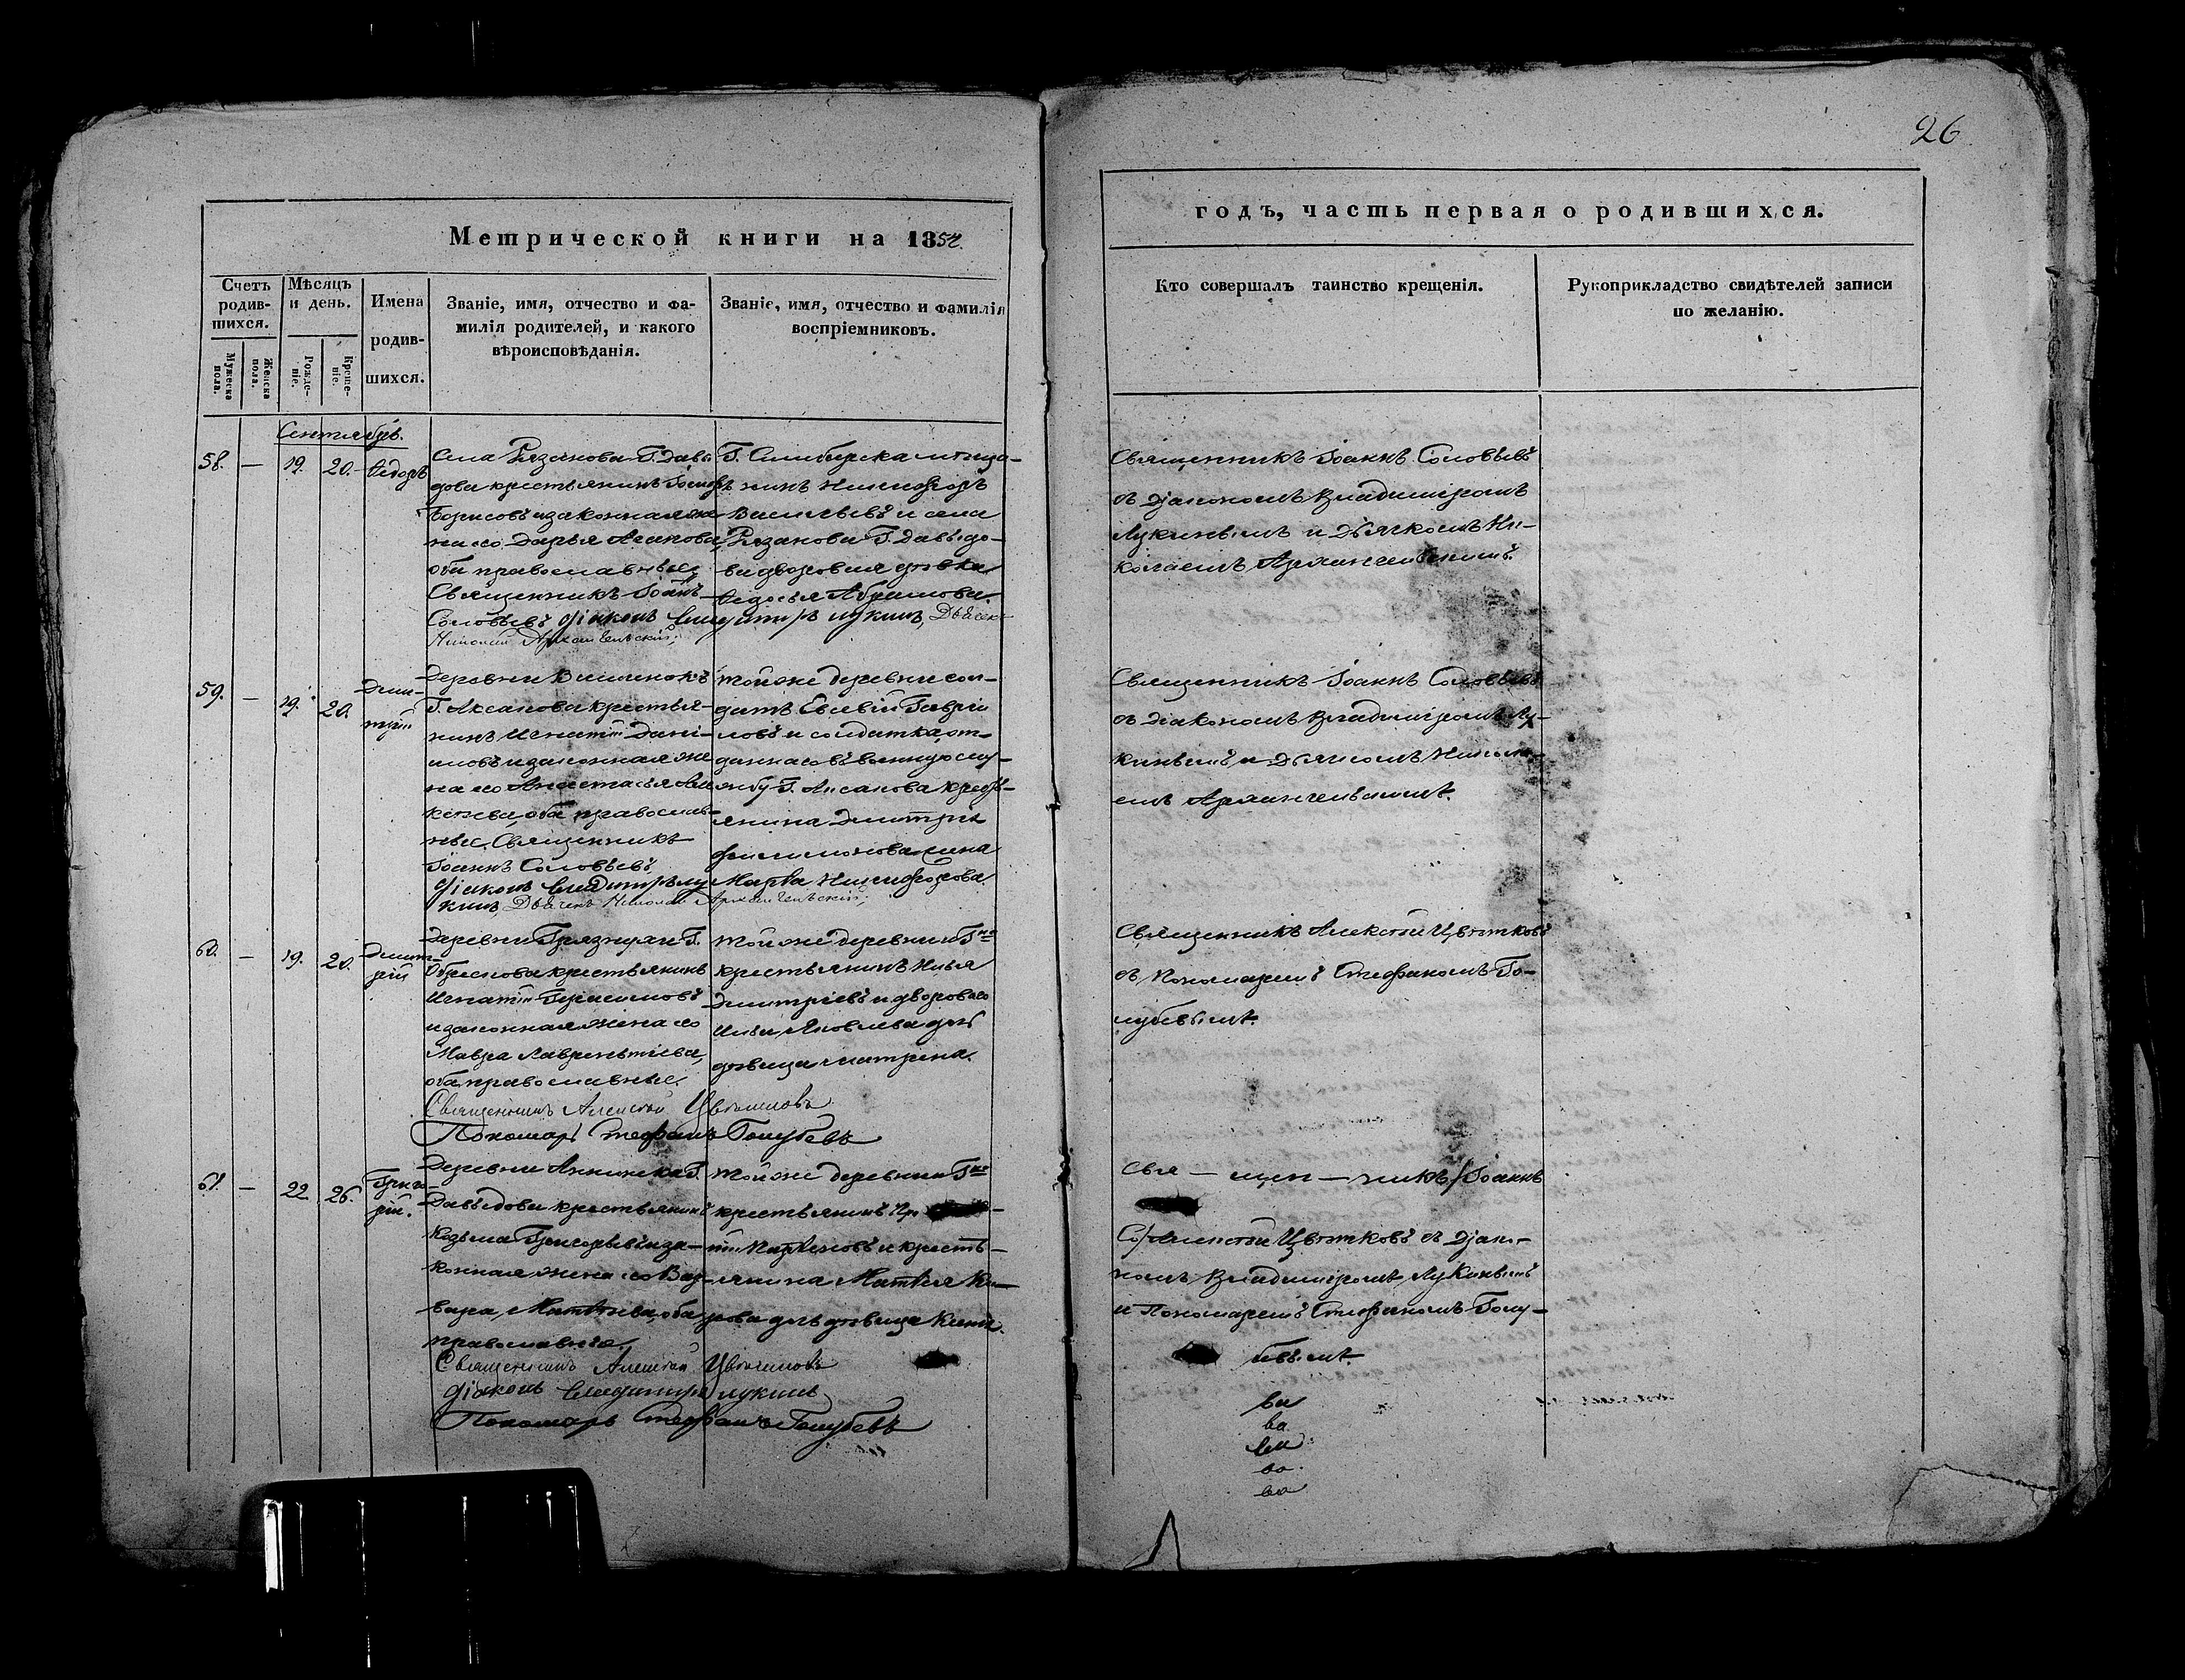 26
Метрической книги на 1854.
годъ, часть первая о родившихся.
Счетъ родив-шихся.
Мужеска пола.
Женска пола.
Мѣсяцъ и день.
Рожде-ніе.
Креще-ніе.
Имена
родив-
шихся.
Званіе, имя, отчество и фа-
милія родителей, и какого
вѣроисповѣданія.
Званіе, имя, отчество и фамилія
воспріемниковъ.
Кто совершалъ таинство крещенія.
Рукоприкладство свидѣтелей записи
по желанію.
Сентябрь.
58. — 19. 20. Ѳедоръ
Села Рязанова Г. Давы-
дова крестьянинъ
Борисовъ и законная же-
на его Дарья
оба православные
Священникъ Іоаннъ
Соловьевъ діаконъ Владиміръ Лукинъ, Дьячекъ
Николай Архангельскій;
Г. Симбирска мѣща-
нинъ Никифоръ
Васильевъ и села
Рязанова Г. Давыдо-
ва дворовая дѣвка
Ѳедосья Абрамова.
Священникъ Іоаннъ Соловьевъ
съ Діакономъ Владиміромъ
Лукинымъ и Дьячкомъ Ни-
колаемъ Архангельскимъ.
59. — 19. 20. Дми-
трій
Деревни Вишенокъ
Г. Аксакова крестья-
нинъ Игнатій Дані-
ловъ и законная же
на его Анастасья Але
ксѣева, оба православ-
ные. Священникъ
Іоаннъ Соловьевъ
діаконъ Владиміръ Лу
кинъ, Дьячекъ Николай Архангельскій;
той же деревни сол-
датъ Евсевій Гаври
ловъ и солдатка, от-
даннаго въ военную слу-
жбу Г. Аксакова кресть-
янина Дмитрія
Филимонова жена
Марѳа Никифорова.
Священникъ Іоаннъ Соловьевъ
съ Діакономъ Владиміромъ Лу-
кинымъ и Дьячкомъ Никола-
емъ Архангельскимъ.
60. — 19. 20. Димит-
рій
Деревни Грязнухи Г.
крестьянинъ
Игнатій Герасимовъ
и законная жена его
Мавра Лаврентьева,
оба православные.
Священникъ Алексѣй Цвѣтковъ
Пономарь Стефанъ Голубевъ
той же деревни и Гна
крестьянинъ Илья
Дмитріевъ и двороваго
Ильи Яковлева дочь
дѣвица Матрена.
Священникъ Алексѣй Цвѣтковъ
съ Пономаремъ Стефаномъ Го-
лубевымъ.
61. — 22. 26. Григо-
рій.
Деревни Г.
Давыдова крестьянинъ
Козьма Григорьевъ и за-
конная жена его Вар-
вара Матвѣева, оба
православные.
Священникъ Алексѣй Цвѣтковъ
діаконъ Владиміръ Лукинъ
Пономарь Стефанъ Голубевъ
той же деревни и Гна
крестьянинъ
и кресть-
янина Матвѣя
дочь дѣвица
Свя — щен — никъ Іоаннъ
Алексѣй Цвѣтковъ съ Діако-
номъ Владиміромъ Лукинымъ
и Пономаремъ Стефаномъ Голу-
бевымъ.
ва
ва
ва
ва
ва